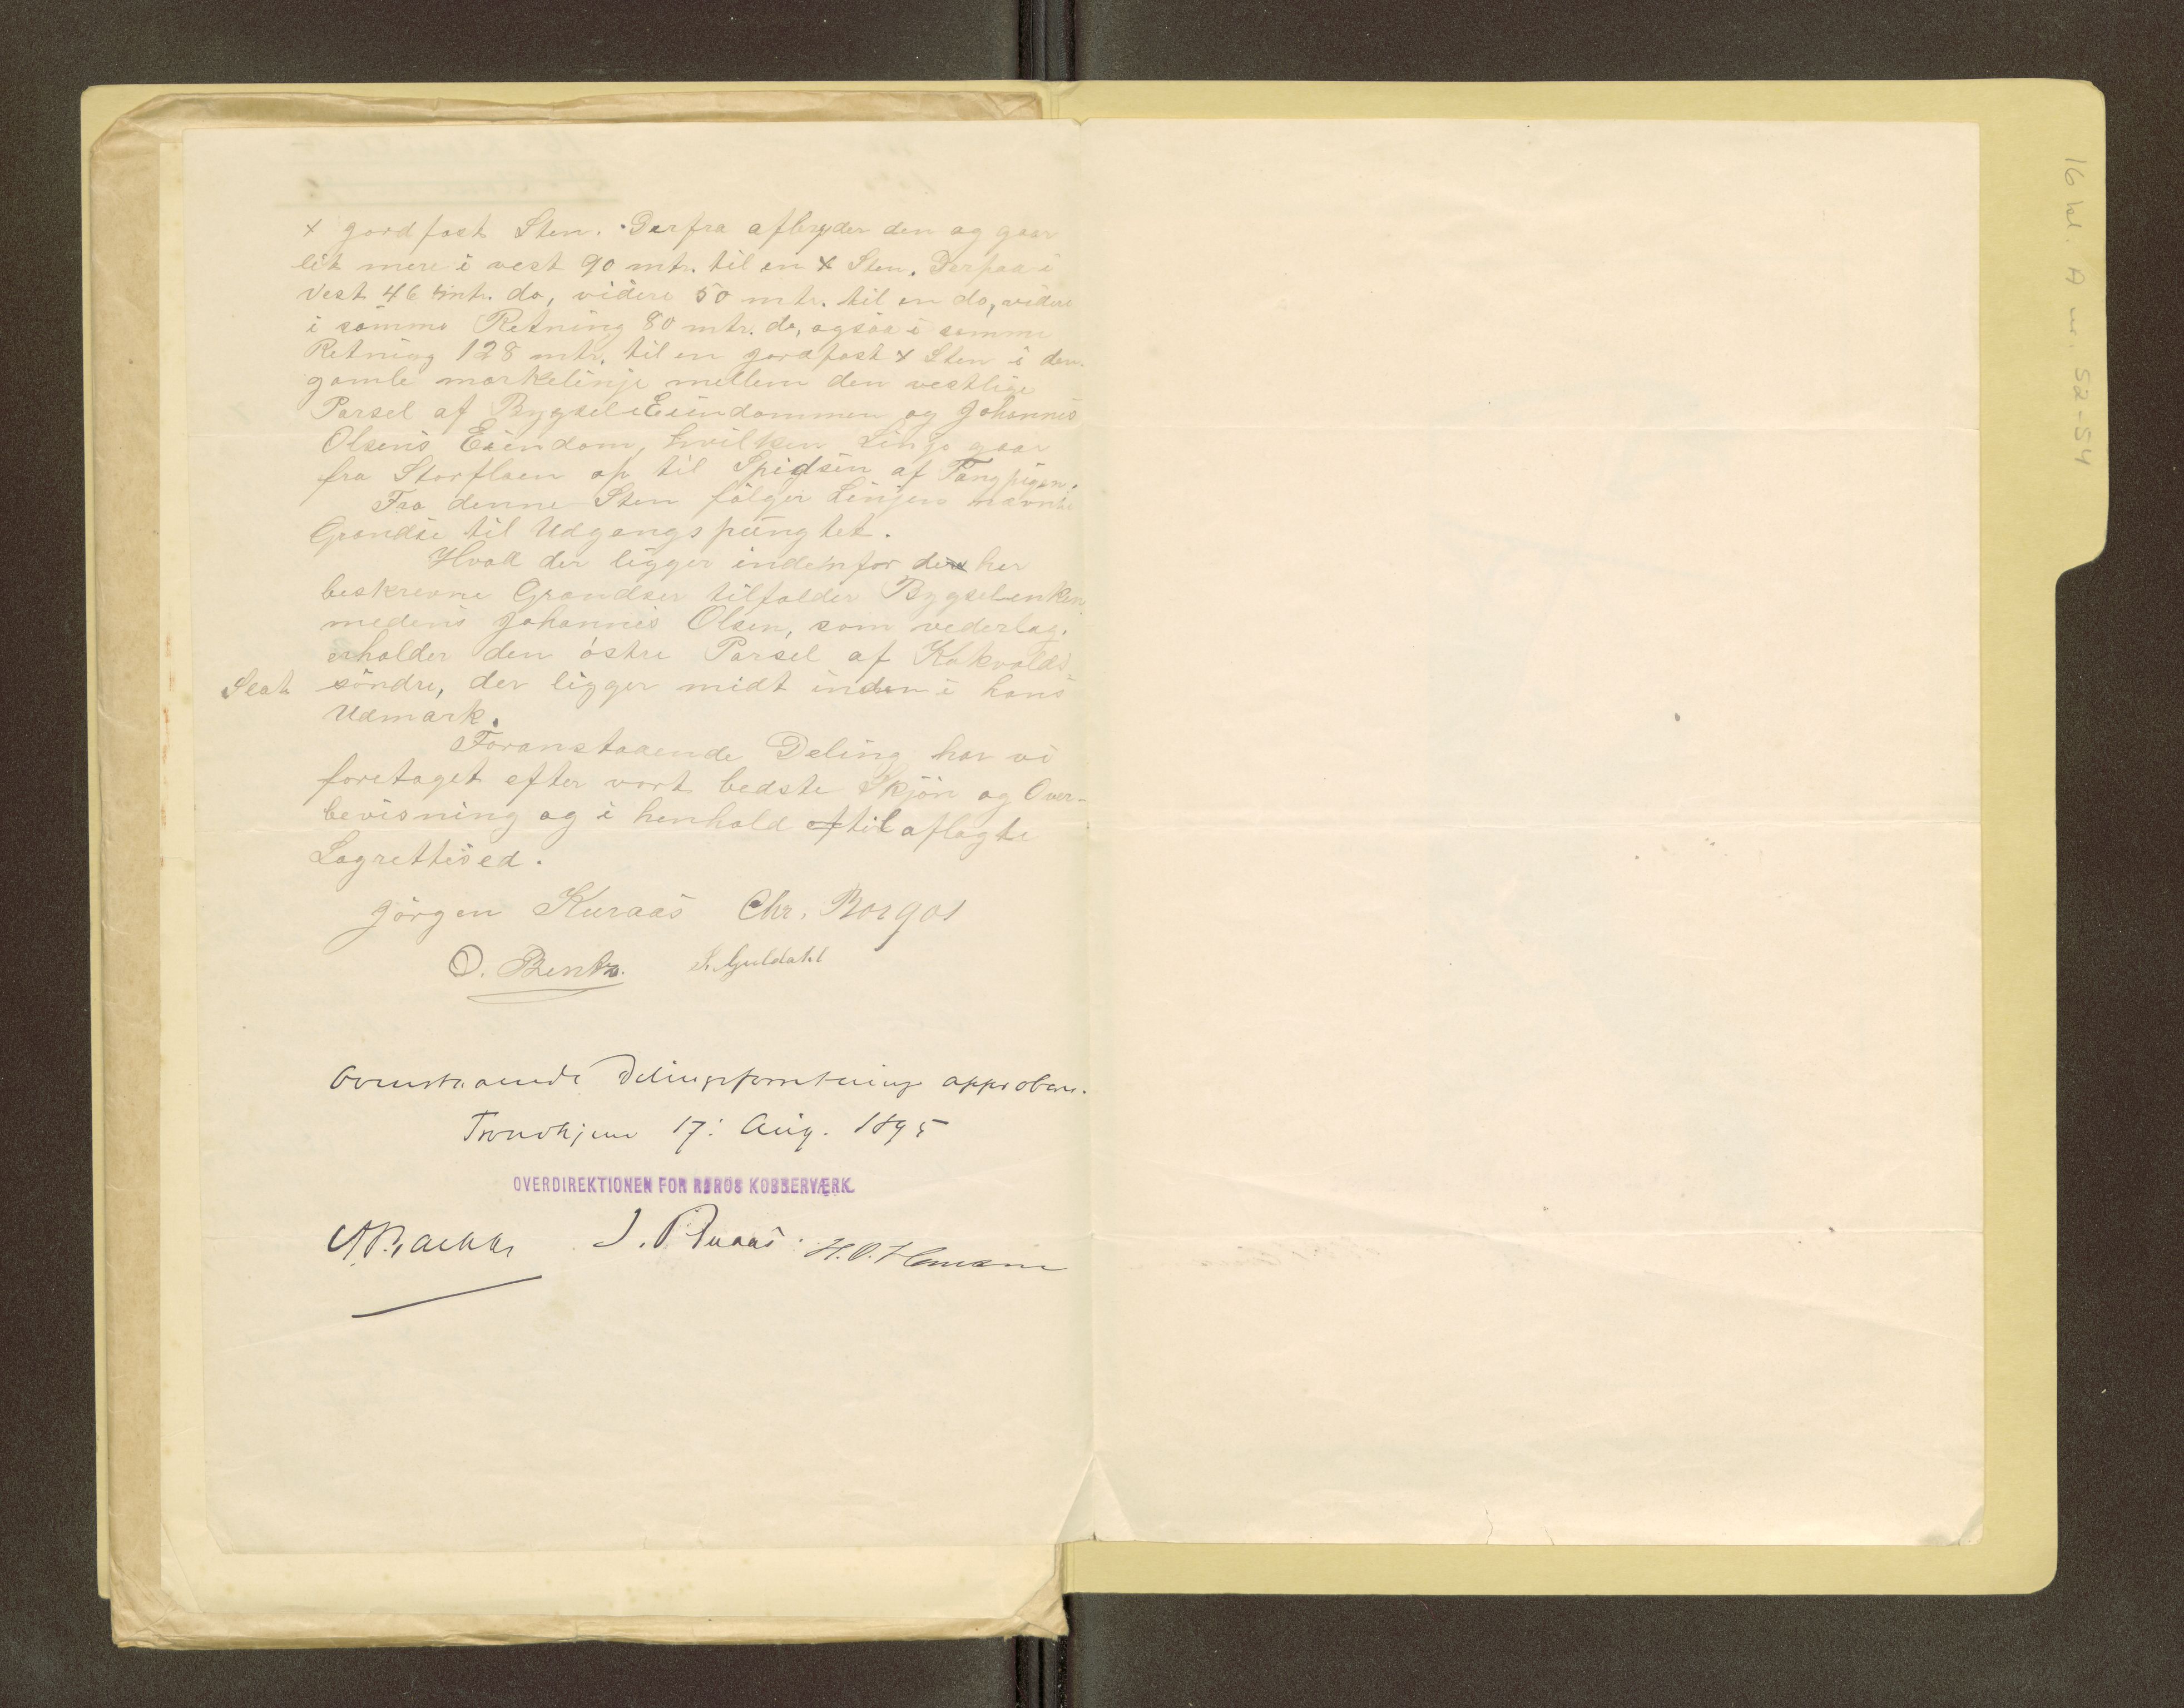 x jordfast Sten. Derfra afbryder den og gaar
lit mere i vest 90 mtr. til en x Sten. Derpaa i
Vest 46 mtr. do, videre 50 mtr. til en do, videre
i samme Retning 80 mtr. do, ogsaa i samme
Retning 128 mtr. til en jordfast x Sten i den
gamle markelinje mellem den vestlige
Parsel af Bygsel-Eiendommen og Johannes
Olsens Eiendom, hvilken Linje gaar
fra Storflaen op til Spidsen af
Fra denne Sten følger Linjen nævnte
Grændse til Udgangspungtet.
Hvad der ligger indenfor den her
beskrevne Grændser tilfalder Bygselenken,
medens Johannes Olsen, som vederlag,
erholder den östre Parsel af Kokvolds-
Slat söndre, der ligger midt inden i hans
Udmark.
Foranstaaende Deling har vi
foretaget efter vort bedste Skjön og Over-
bevisning og i henhold af til aflagte
Lagrettesed.
Jörgen Kuraas Chr. Borgos
O. Bentz. J. Guldahl
Ovenstaaende Delingsforretning approberes.
Trondhjem 17. Aug. 1895
OVERDIREKTIONEN FOR RØROS KOBBERVÆRK.
J.
H. O.
16 kl. A nr. 52-54